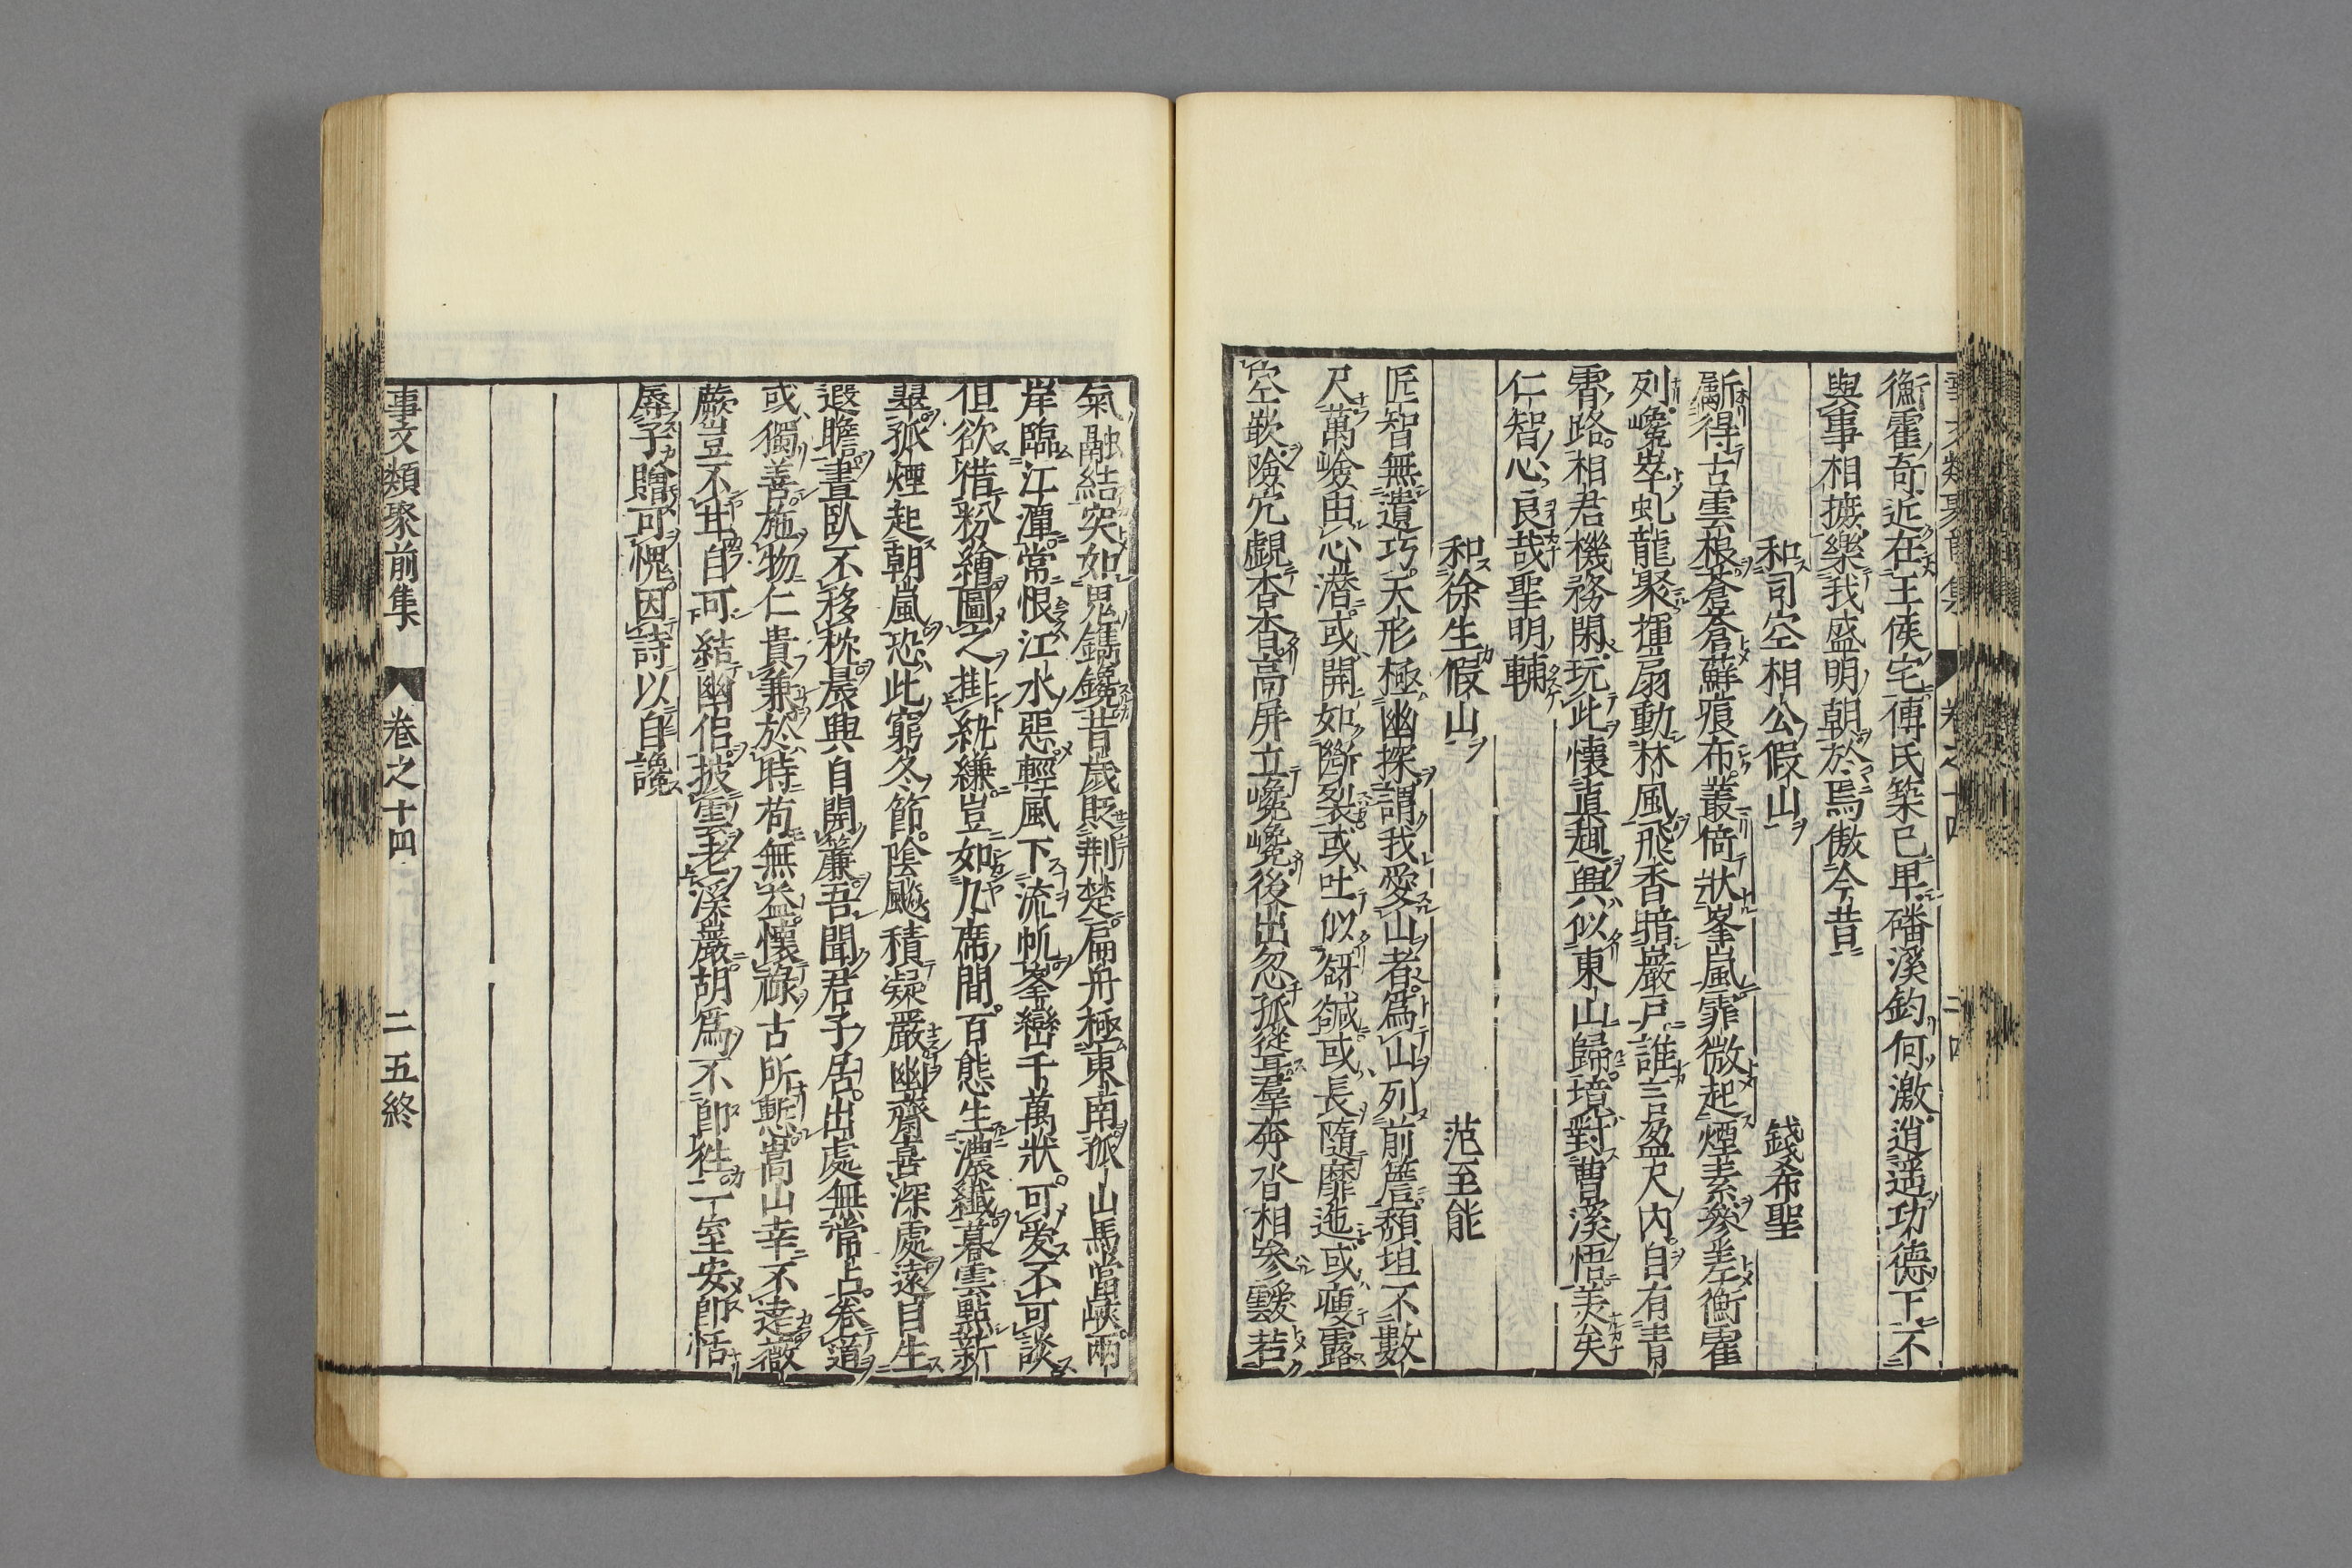 衡霍奇近在王侯宅傅氏築已卑磻溪釣何激逍遥功德下不
與事相摭樂我盛明朝於焉傲今昔
和司空相公假山 錢希聖
斸得古雲根蒼蒼蘇痕布叢倚狀峯嵐霏微起煙素參差衡霍
列巉崒虬龍聚揮扇動林風飛杳暗巖戸誰言盈尺内自有青
霄路相君機務閑玩此懷眞趣興似東山歸境對曹溪悟美矣
仁智心良哉聖明輔
和徐生假山 范至能
匠智無遺巧天形極幽探謂我愛山者爲山列前簷頽垣不數
尺萬嶮由心潜或開如斷裂或吐似谽或長隨靡迤或瘦露
空嵌險穴覷杳杳高屏立巉巉後出忽孤聳群奔沓相參靉若
氣融結突如鬼鐫鑱昔歲貶荆楚扁舟極東南孤山馬當峽兩
岸臨江潭常恨江水惡輕風下流帆峯巒千萬狀可愛不可談
但欲借粉繪圖之掛紈縑豈如几席間百態生濃纖暮雲點新
翠孤煙起朝嵐恐此窮冬節陰飈積凝嚴幽齋喜深處遠目生
遐瞻晝臥不移枕晨興自開簾吾聞君子居出處無常占卷道
或獨善施物仁貴兼於時苟無益懷祿古所慙嵩山幸不遠薇
蕨豈不甘自可結幽侶披雲老溪巖胡爲不即往一室安即恬
辱子贈可愧因詩以自讒
事文類聚前集 卷之十四 二五終